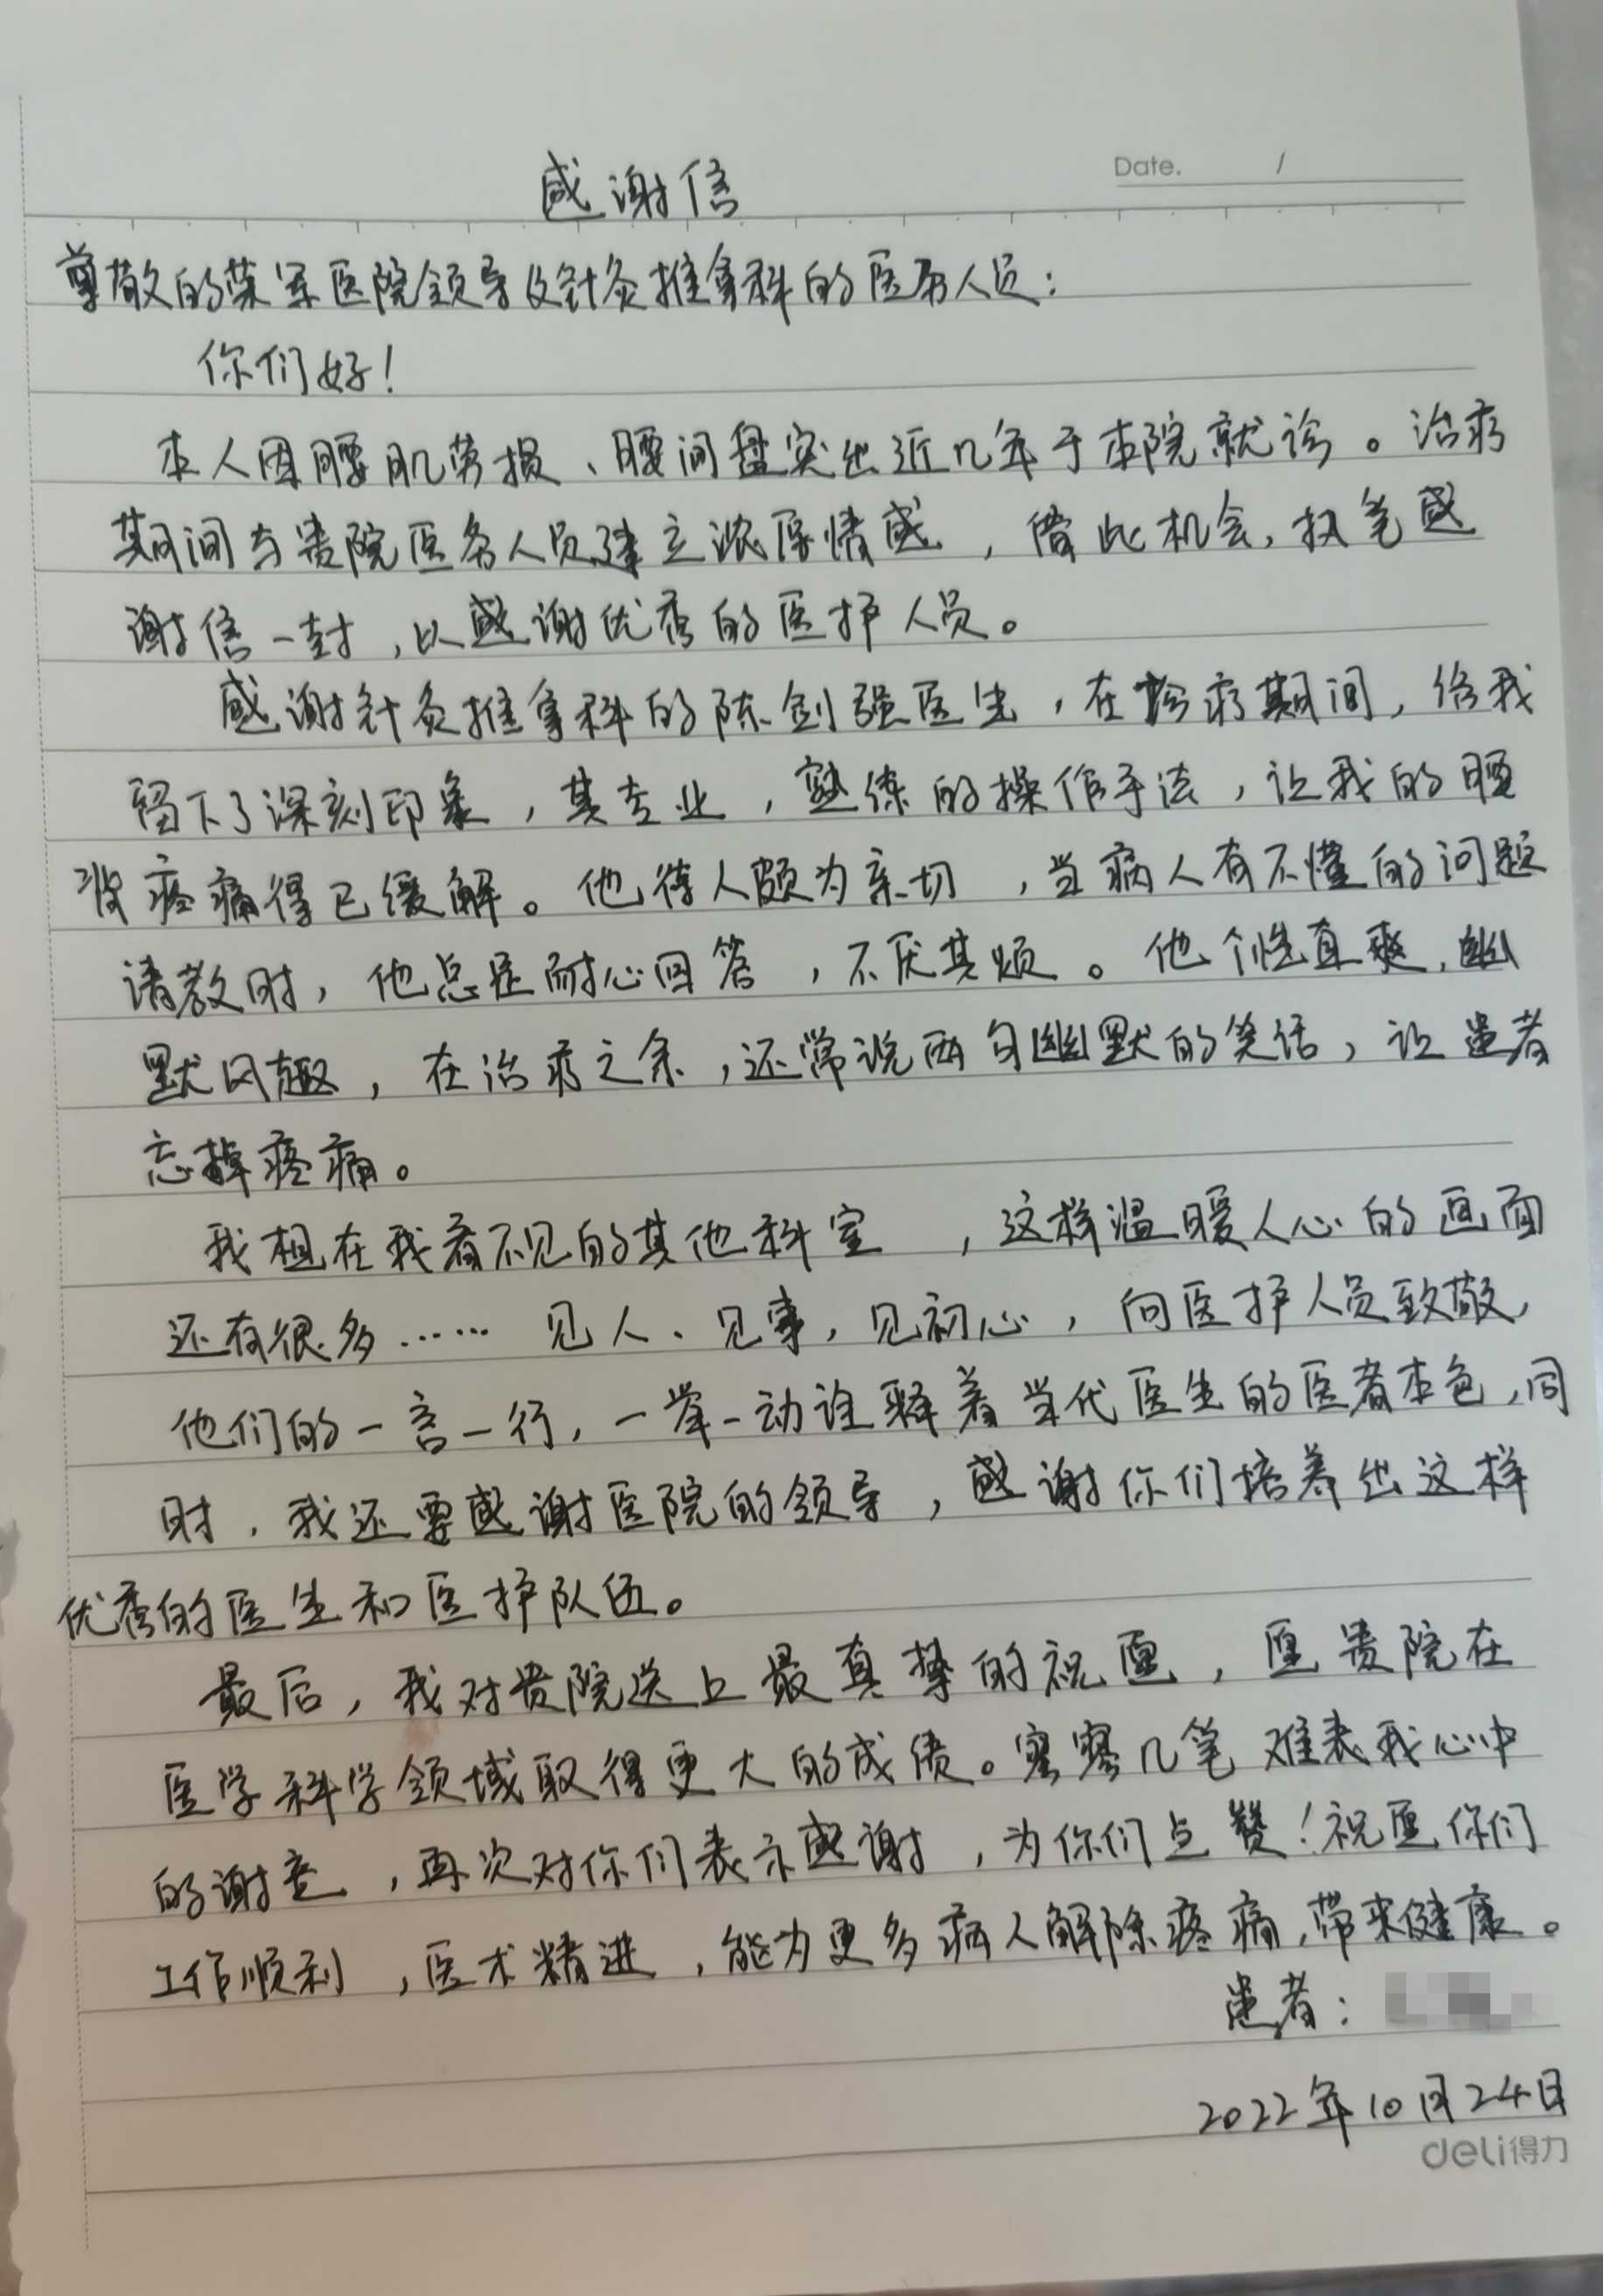 Date. /
感谢信
尊敬的荣军医院领导及针灸推拿科的医务人员：
你们好！
本人因腰肌劳损、腰间盘突出近几年于本院就诊。治疗
期间与贵院医务人员建立浓厚情感，借此机会，执笔感
谢信一封，以感谢优秀的医护人员。
感谢针灸推拿科的陈剑强医生，在诊疗期间，给我
留下了深刻印象，其专业，熟练的操作手法，让我的腰
背疼痛得已缓解。他待人颇为亲切，当病人有不懂的问题
请教时，他总是耐心回答，不厌其烦。他个性直爽，幽
默风趣，在治疗之余，还常说两句幽默的笑话，让患者
忘掉疼痛。
我想在我看不见的其他科室，这样温暖人心的画面
还有很多…… 见人、见事，见初心，向医护人员致敬，
他们的一言一行，一举一动诠释着当代医生的医者本色，同
时，我还要感谢医院的领导，感谢你们培养出这样
优秀的医生和医护队伍。
最后，我对贵院送上最真挚的祝愿，愿贵院在
医学科学领域取得更大的成绩。寥寥几笔难表我心中
的谢意，再次对你们表示感谢，为你们点赞！祝愿你们
工作顺利，医术精进，能为更多病人解除疼痛，带来健康。
患者：
2022年10月24日
deli得力